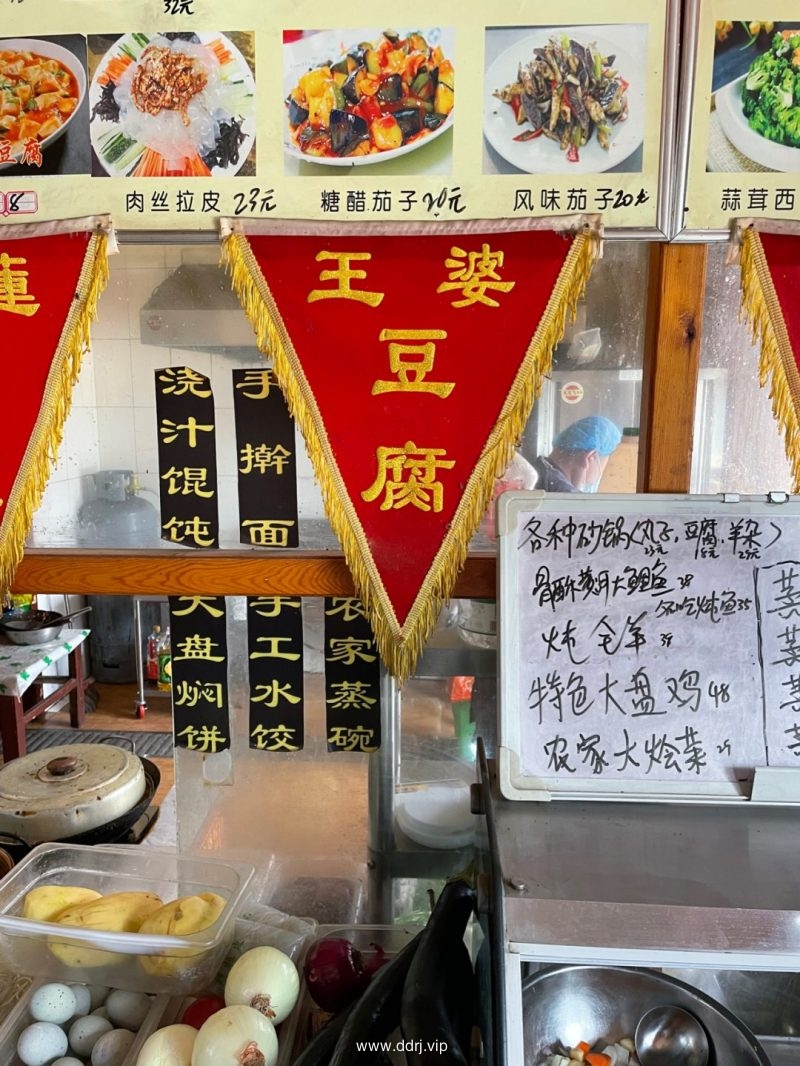 32元
豆腐
8
肉丝拉皮 23元
糖醋茄子 20元
风味茄子 20元
蒜茸西
蓮
王婆
豆
腐
浇汁馄饨
手擀面
大盘焖饼
手工水饺
农家蒸碗
各种砂锅(丸子、豆腐、羊杂)
炖全羊
特色大盘鸡 48
农家大烩菜
www.ddrj.vip